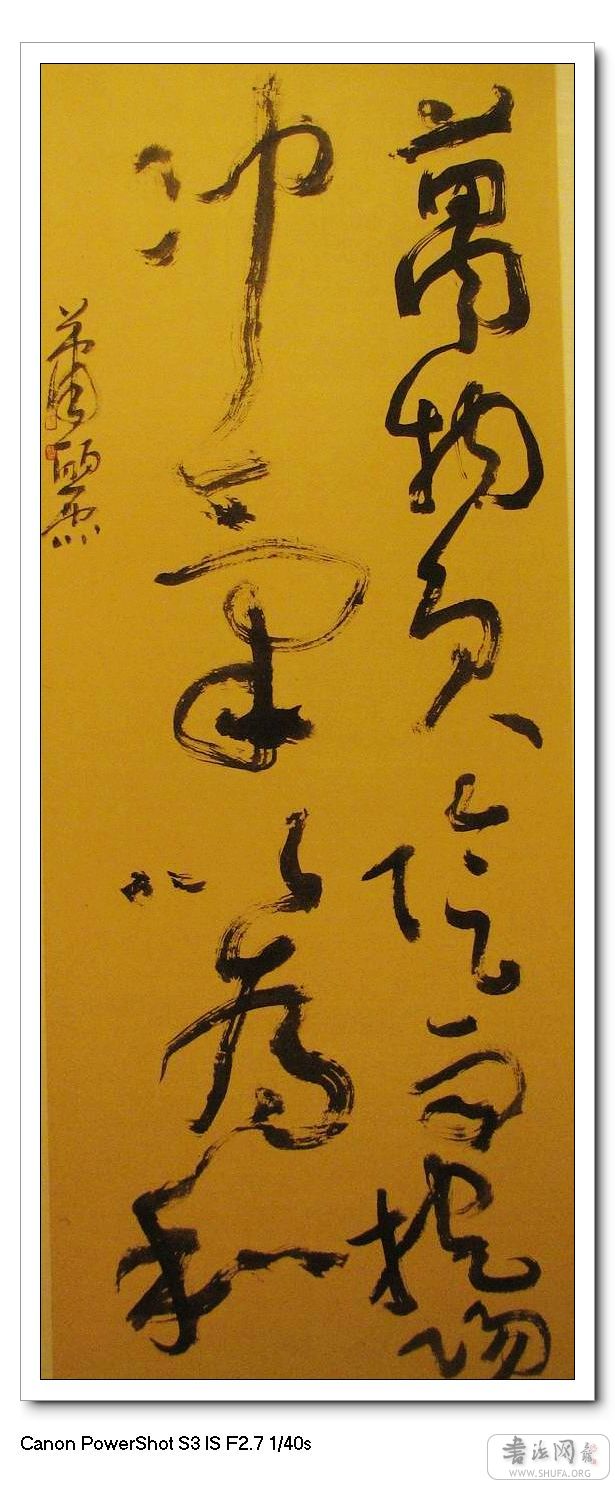 萬物負陰而抱陽
冲氣以為和
蕭
Canon PowerShot S3 IS F2.7 1/40s
書法网
WWW.SHUFA.ORG